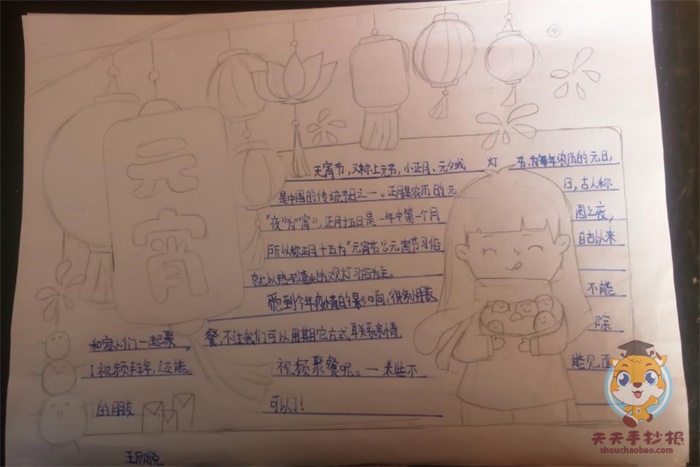 元宵
元宵节，又称上元节，小正月、元夕或 灯 节，时每年农历的元日，
是中国的传统节日之一。正月是农历的元 日，古人称
“夜”为“宵”，正月十五日是一年中第一个月 圆之夜，
所以称正月十五为“元宵节”元宵节习俗 自古以来
就以热 观灯习俗为主。
受到今年疫情的影响，很多 不能
和家人们一起聚 餐，不过我们可以用其它方式，联系亲情， 除
了视频拜年，还能 视频聚餐呢。一来些不 能见面
的朋友 可以了！
天天手抄报
shouchaobao.com